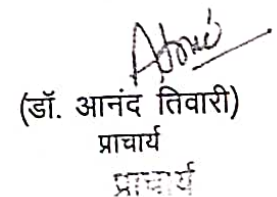 (डॉ. आनंद तिवारी)
प्राचार्य
प्राचार्य